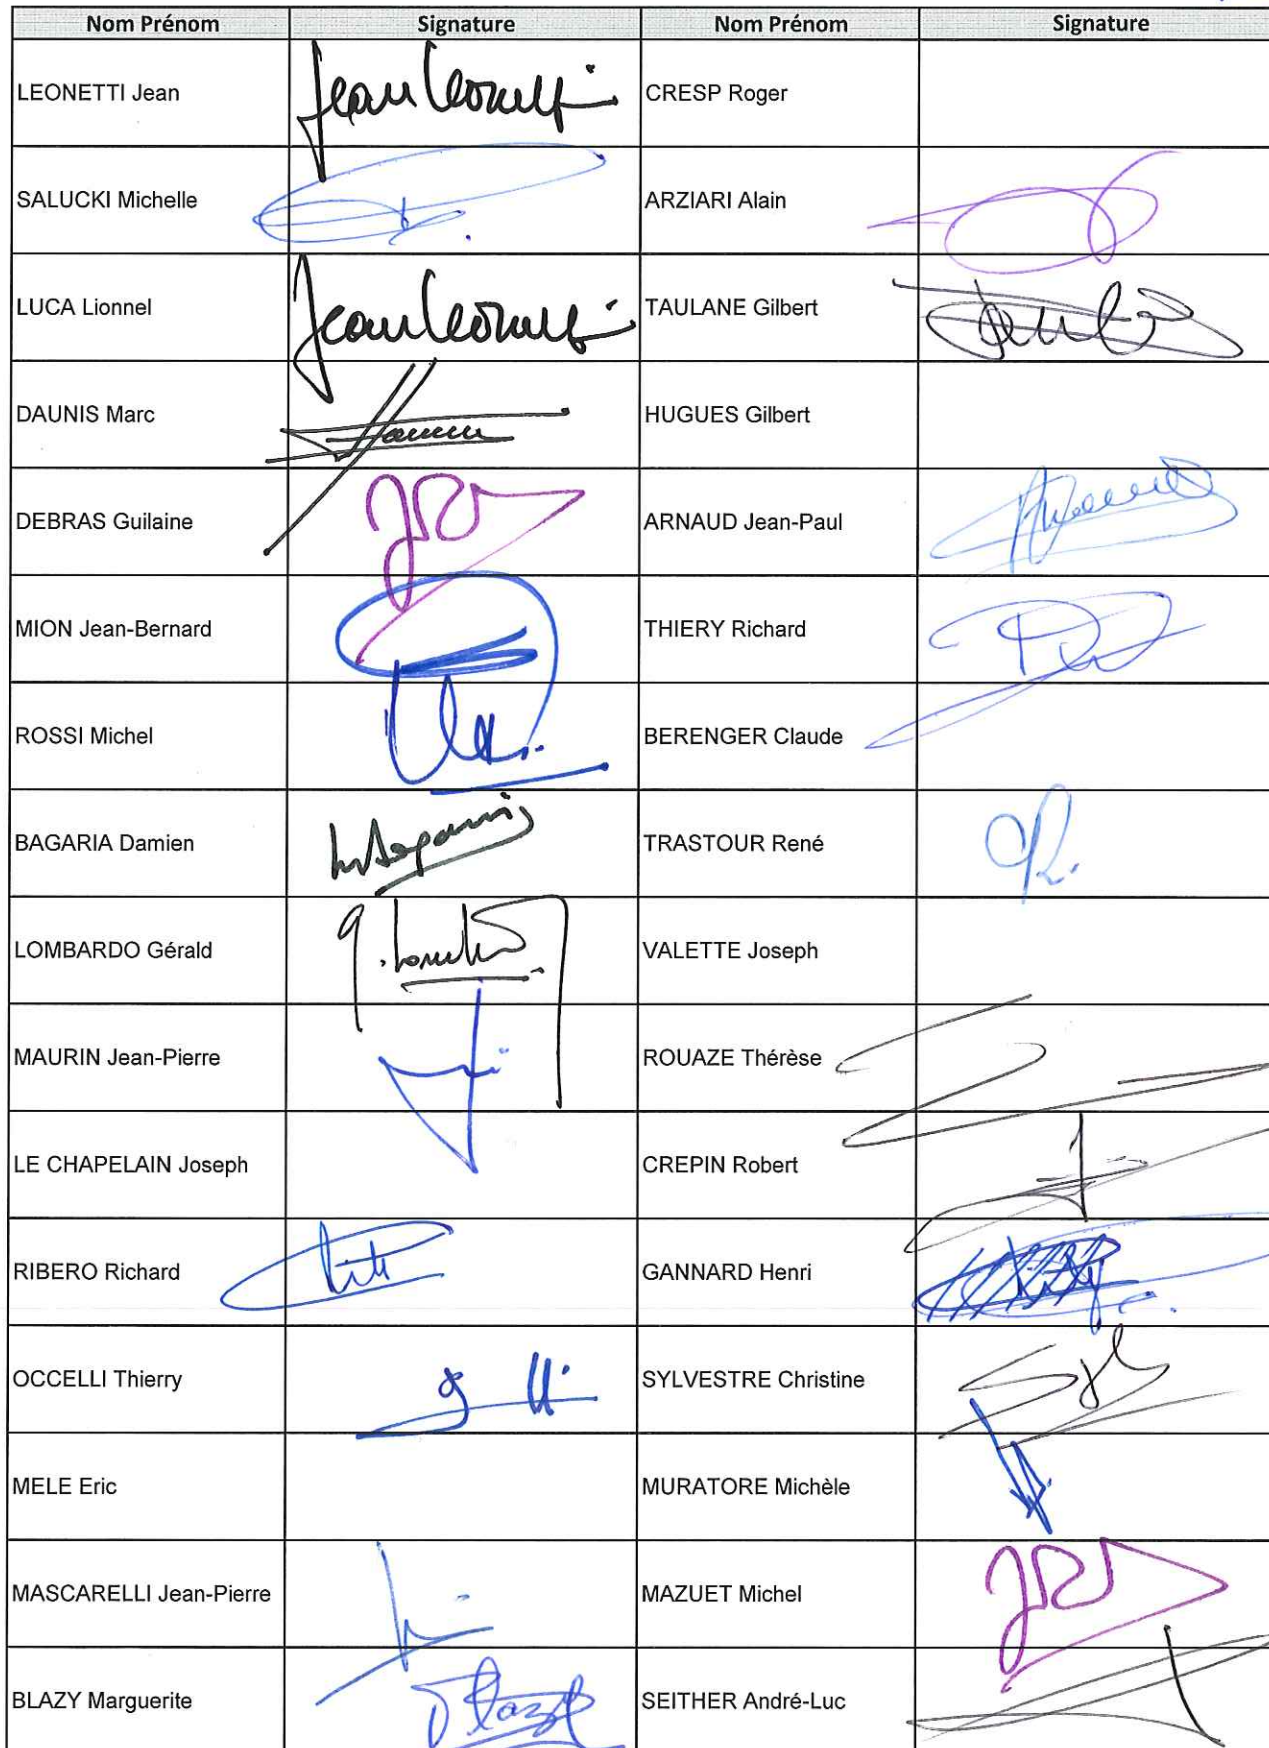 Nom Prénom Signature Nom Prénom Signature
LEONETTI Jean Jean Leonetti CRESP Roger
SALUCKI Michelle ARZIARI Alain
LUCA Lionnel Jean Leonetti TAULANE Gilbert
DAUNIS Marc HUGUES Gilbert
DEBRAS Guilaine ARNAUD Jean-Paul
MION Jean-Bernard THIERY Richard
ROSSI Michel BERENGER Claude
BAGARIA Damien TRASTOUR René
LOMBARDO Gérald VALETTE Joseph
MAURIN Jean-Pierre ROUAZE Thérèse
LE CHAPELAIN Joseph CREPIN Robert
RIBERO Richard GANNARD Henri
OCCELLI Thierry SYLVESTRE Christine
MELE Eric MURATORE Michèle
MASCARELLI Jean-Pierre MAZUET Michel
BLAZY Marguerite Blazy SEITHER André-Luc